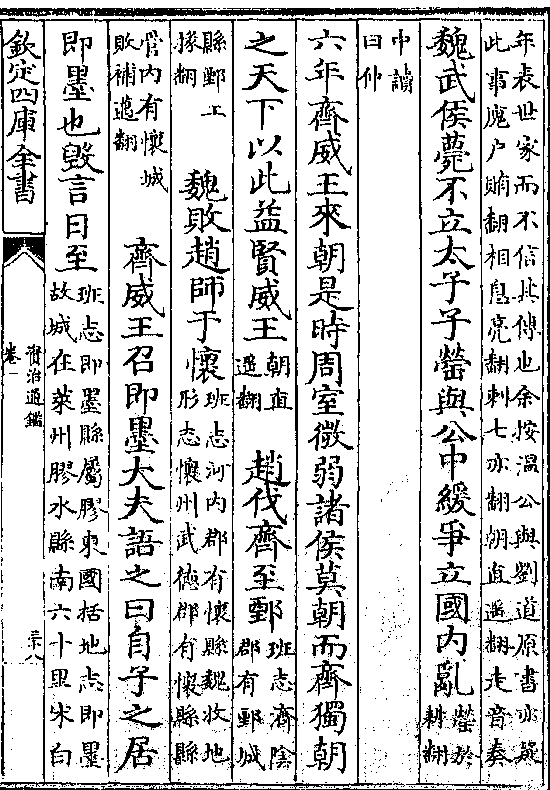 年表世家而不信其傳也余按温公與劉道原書亦疑
此事魔户賄翻相息亮翻刺七亦翻朝直遥翻走音奏
魏武侯薨不立太子子罃與公中緩爭立國内亂罃於耕翻
中讀曰仲
六年齊威王來朝是時周室微弱諸侯莫朝而齊獨朝
之天下以此益賢威王朝直遥翻 趙伐齊至鄄班志濟陰郡有鄄城
縣鄄工掾翻 魏敗趙師于懷班志河内郡有懷縣魏收地形志懷州武德郡有懷縣縣
管内有懷城敗補邁翻 齊威王召即墨大夫語之曰自子之居
即墨也毁言日至班志即墨縣屬膠東國括地志即墨故城在萊州膠水縣南六十里宋白
欽定四庫全書
資治通鑑
卷一